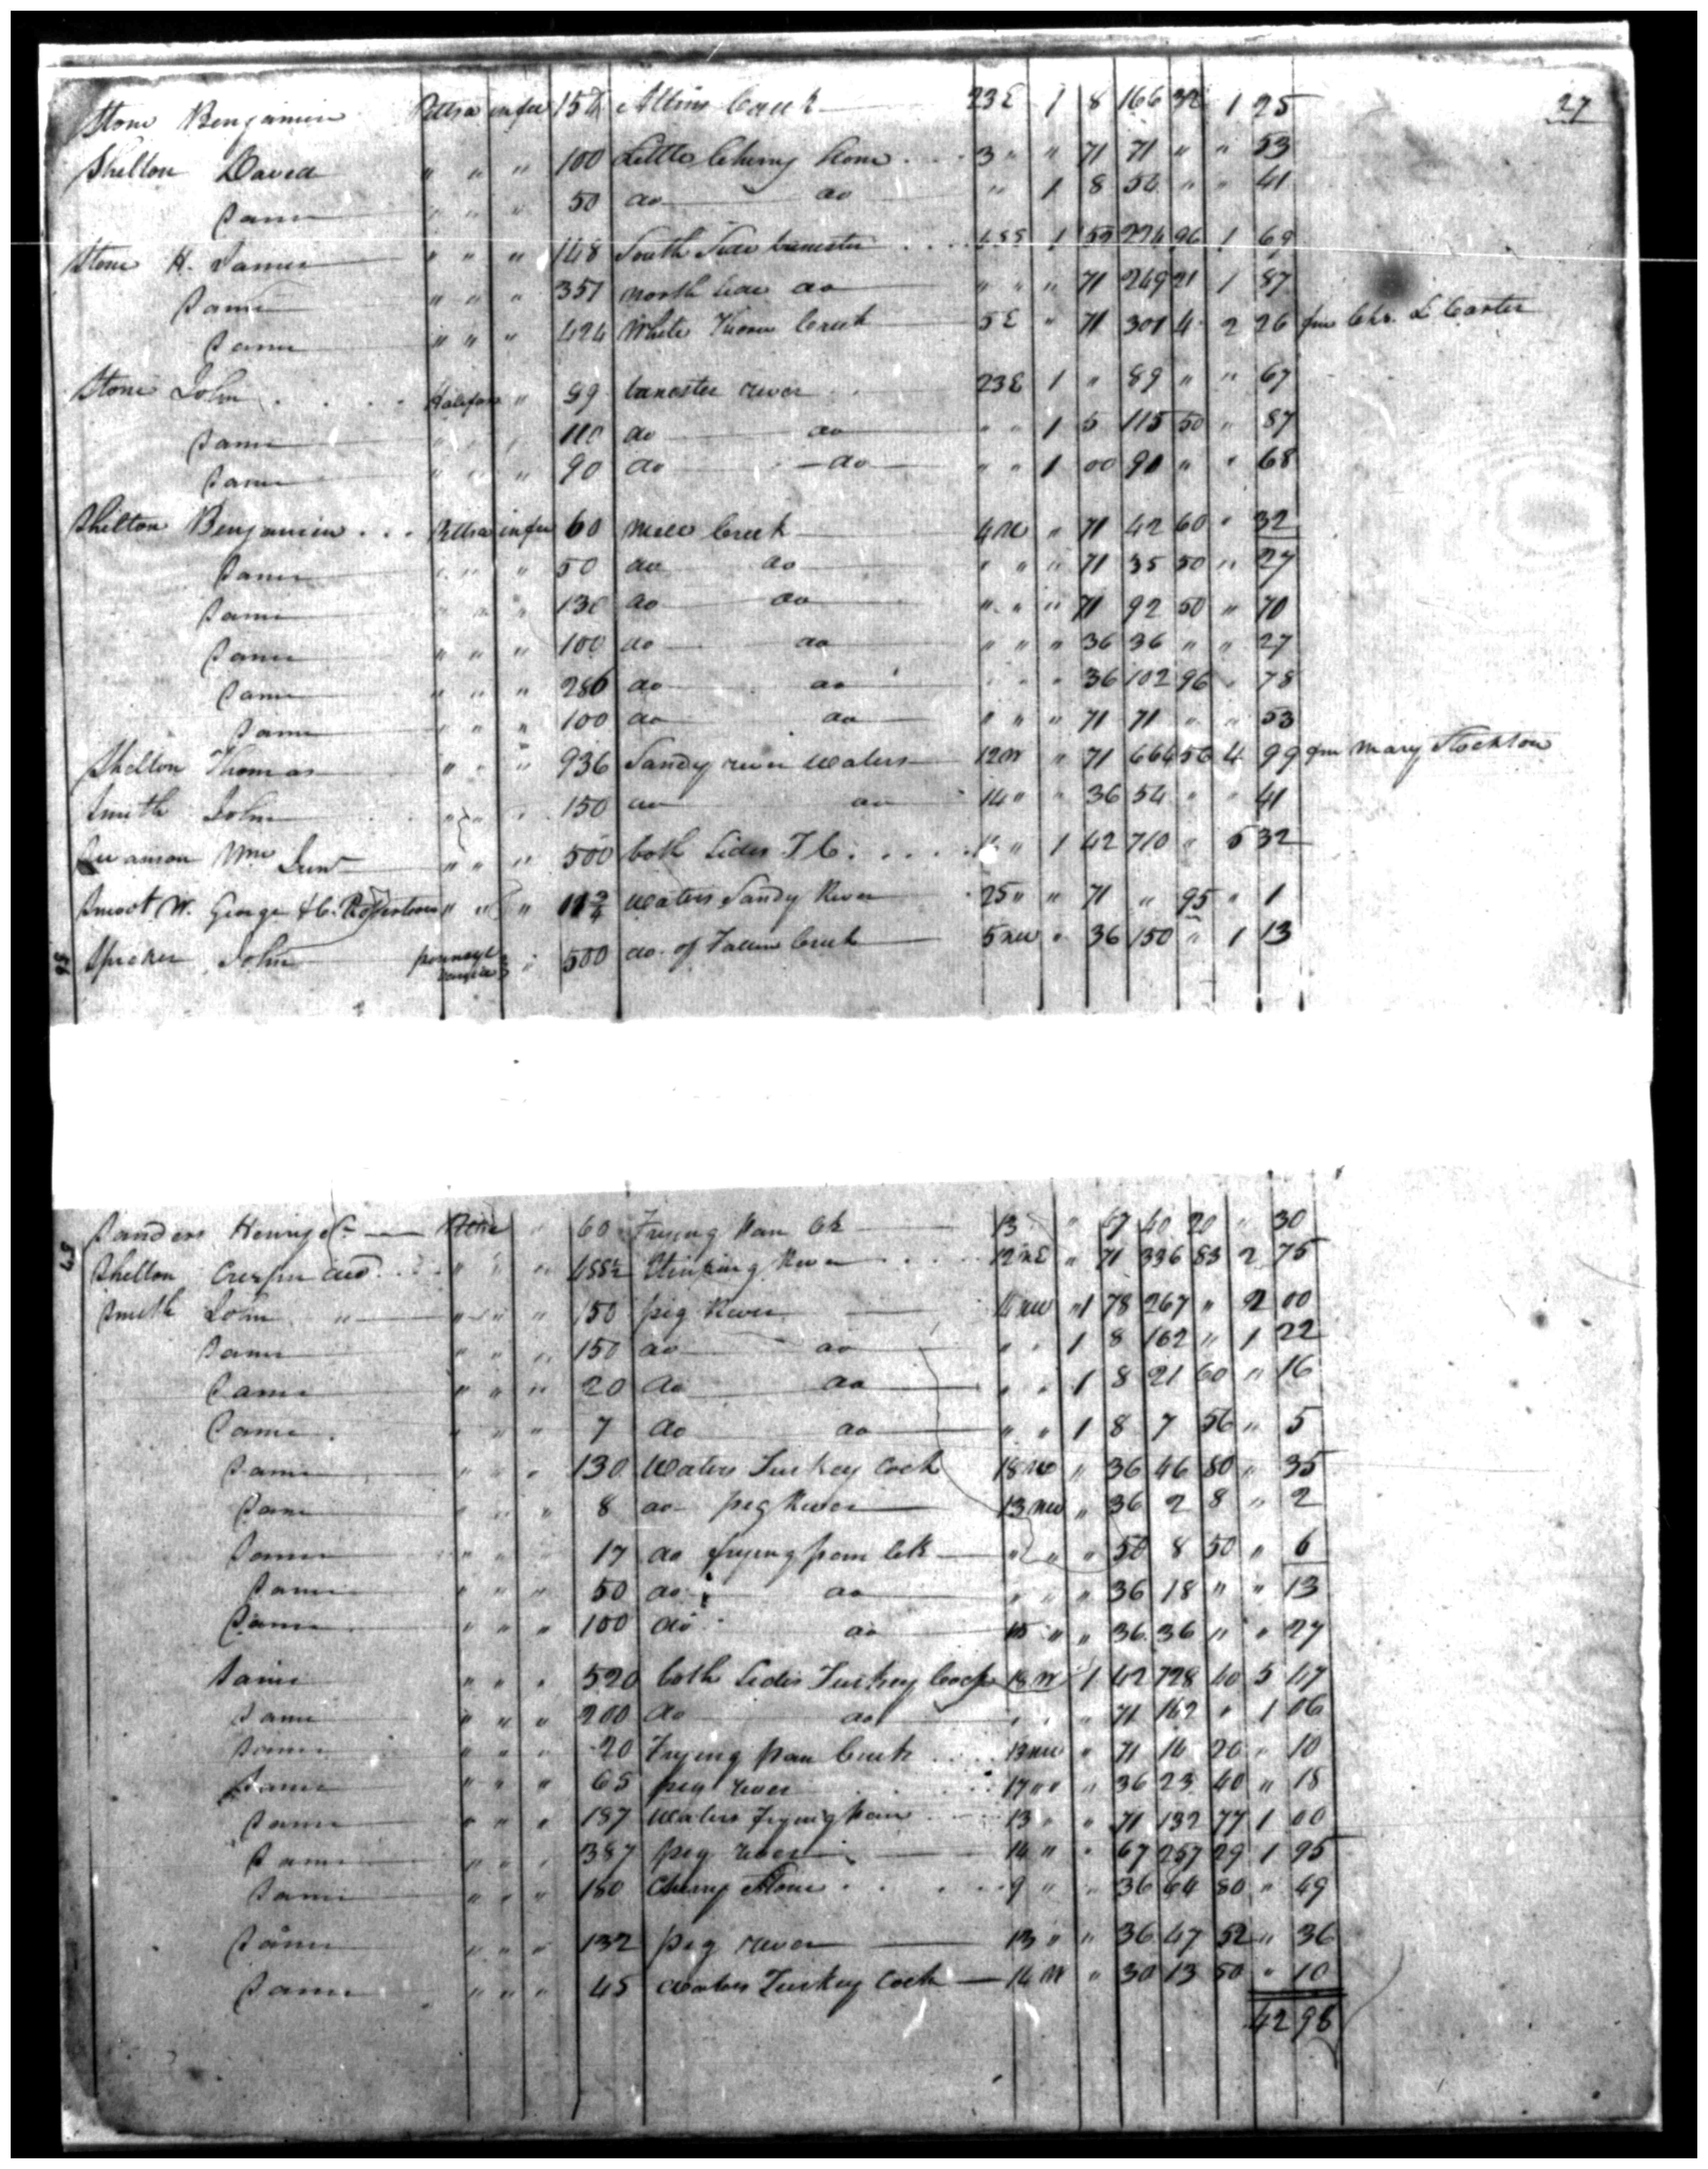 27
Stone Benjamin Pittsa in fee 154 Allins Creek 23 E 1 8 166 32 1 25
Shelton David " " " 100 Little Cherry Stone 3 " " 71 71 " " 53
Same " " " 50 do do " 1 8 54 " " 41
Stone H. James " " " 148 South Side banester 1 53 1 69
Same " " " 351 North Side do " " " 71 249 21 1 87
Same " " " 424 White Thorn Creek 5 E " 71 301 4 2 26 from Chs. L Carter
Stone John Halifax " 89 banester river 23 E 1 " 89 " " 67
Same " " " 110 do do " " 1 5 115 50 " 87
Same " " " 90 do do " " 1 00 90 " " 68
Shelton Benjamin Pittsa in fee 60 Mill Creek 4 N " 71 42 60 " 32
Same " " " 50 do do " " " 71 35 50 " 27
Same " " " 130 do do " " " 71 92 50 " 70
Same " " " 100 do do " " " 36 36 " " 27
Same " " " 286 do do " " " 36 102 96 " 78
Same " " " 100 do do " " " 71 71 " " 53
Shelton Thomas " " " 936 Sandy river waters 12 W " 71 664 56 4 99 from Mary Stockton
Smith John " " " 150 do do 14 " " 36 54 " " 41
Swanson Wm Junr " " " 500 both Sides T C " 1 42 710 " 5 32
Smoot W. George & C. Robertson " " " waters Sandy River 25 " " 71 " 95 " 1
John pennsyl vania " 500 do of Creek 5 NW " 36 150 " 1 13
Sanders Henry " 60 Frying Pan Ck 13 " 67 40 20 " 30
Shelton Crespin " " " 488½ Stinking River 12 NE " 71 336 83 2 75
Smith John " " " " 150 pig River NW " 1 78 267 " 2 00
Same " " " 150 do do " " 1 8 162 " 1 22
Same " " " 20 do do " " 1 8 21 60 " 16
Same " " " 7 do do " " 1 8 7 56 " 5
Same " " " 130 Waters Turkey Cock 18 NW " 36 46 80 " 35
Same " " " 8 do pig River 13 NW " 36 2 8 " 2
Same " " " 17 do frying pan Ck " " " 50 8 50 " 6
Same " " " 50 do do " " " 36 18 " " 13
Same " " " 100 do do " " 36 36 " " 27
Same " " " 520 both Sides Turkey Cock 18 W 1 42 728 40 5 47
Same " " " 200 do do " " " 71 142 " 1 06
Same " " " 20 Frying pan Creek 13 NW " 71 14 20 " 10
Same " " " 65 pig river 17 " " 36 23 40 " 18
Same " " " 187 Waters Frying pan 13 " " 71 132 77 1 00
Same " " " 387 pig river 14 " " 67 257 29 1 95
Same " " " 180 Cherry Stone 9 " " 36 64 80 " 49
Same " " " 132 pig river 13 " " 36 47 52 " 36
Same " " " 45 Waters Turkey Cock 14 W " 30 13 50 " 10
42 98